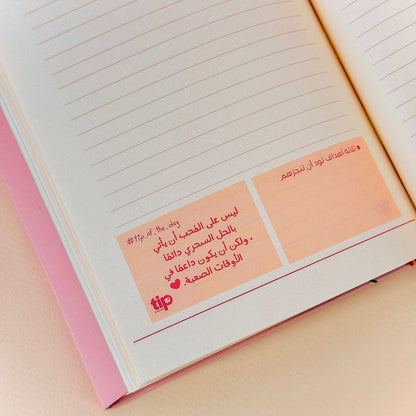 #tip_of_the_day
ليس على المُحب أن يأتي
بالحل السحري دائمًا
، ولكن أن يكون داعمًا في
الأوقات الصعبة.
tip
• ثلاثة أهداف تود أن تنجزهم